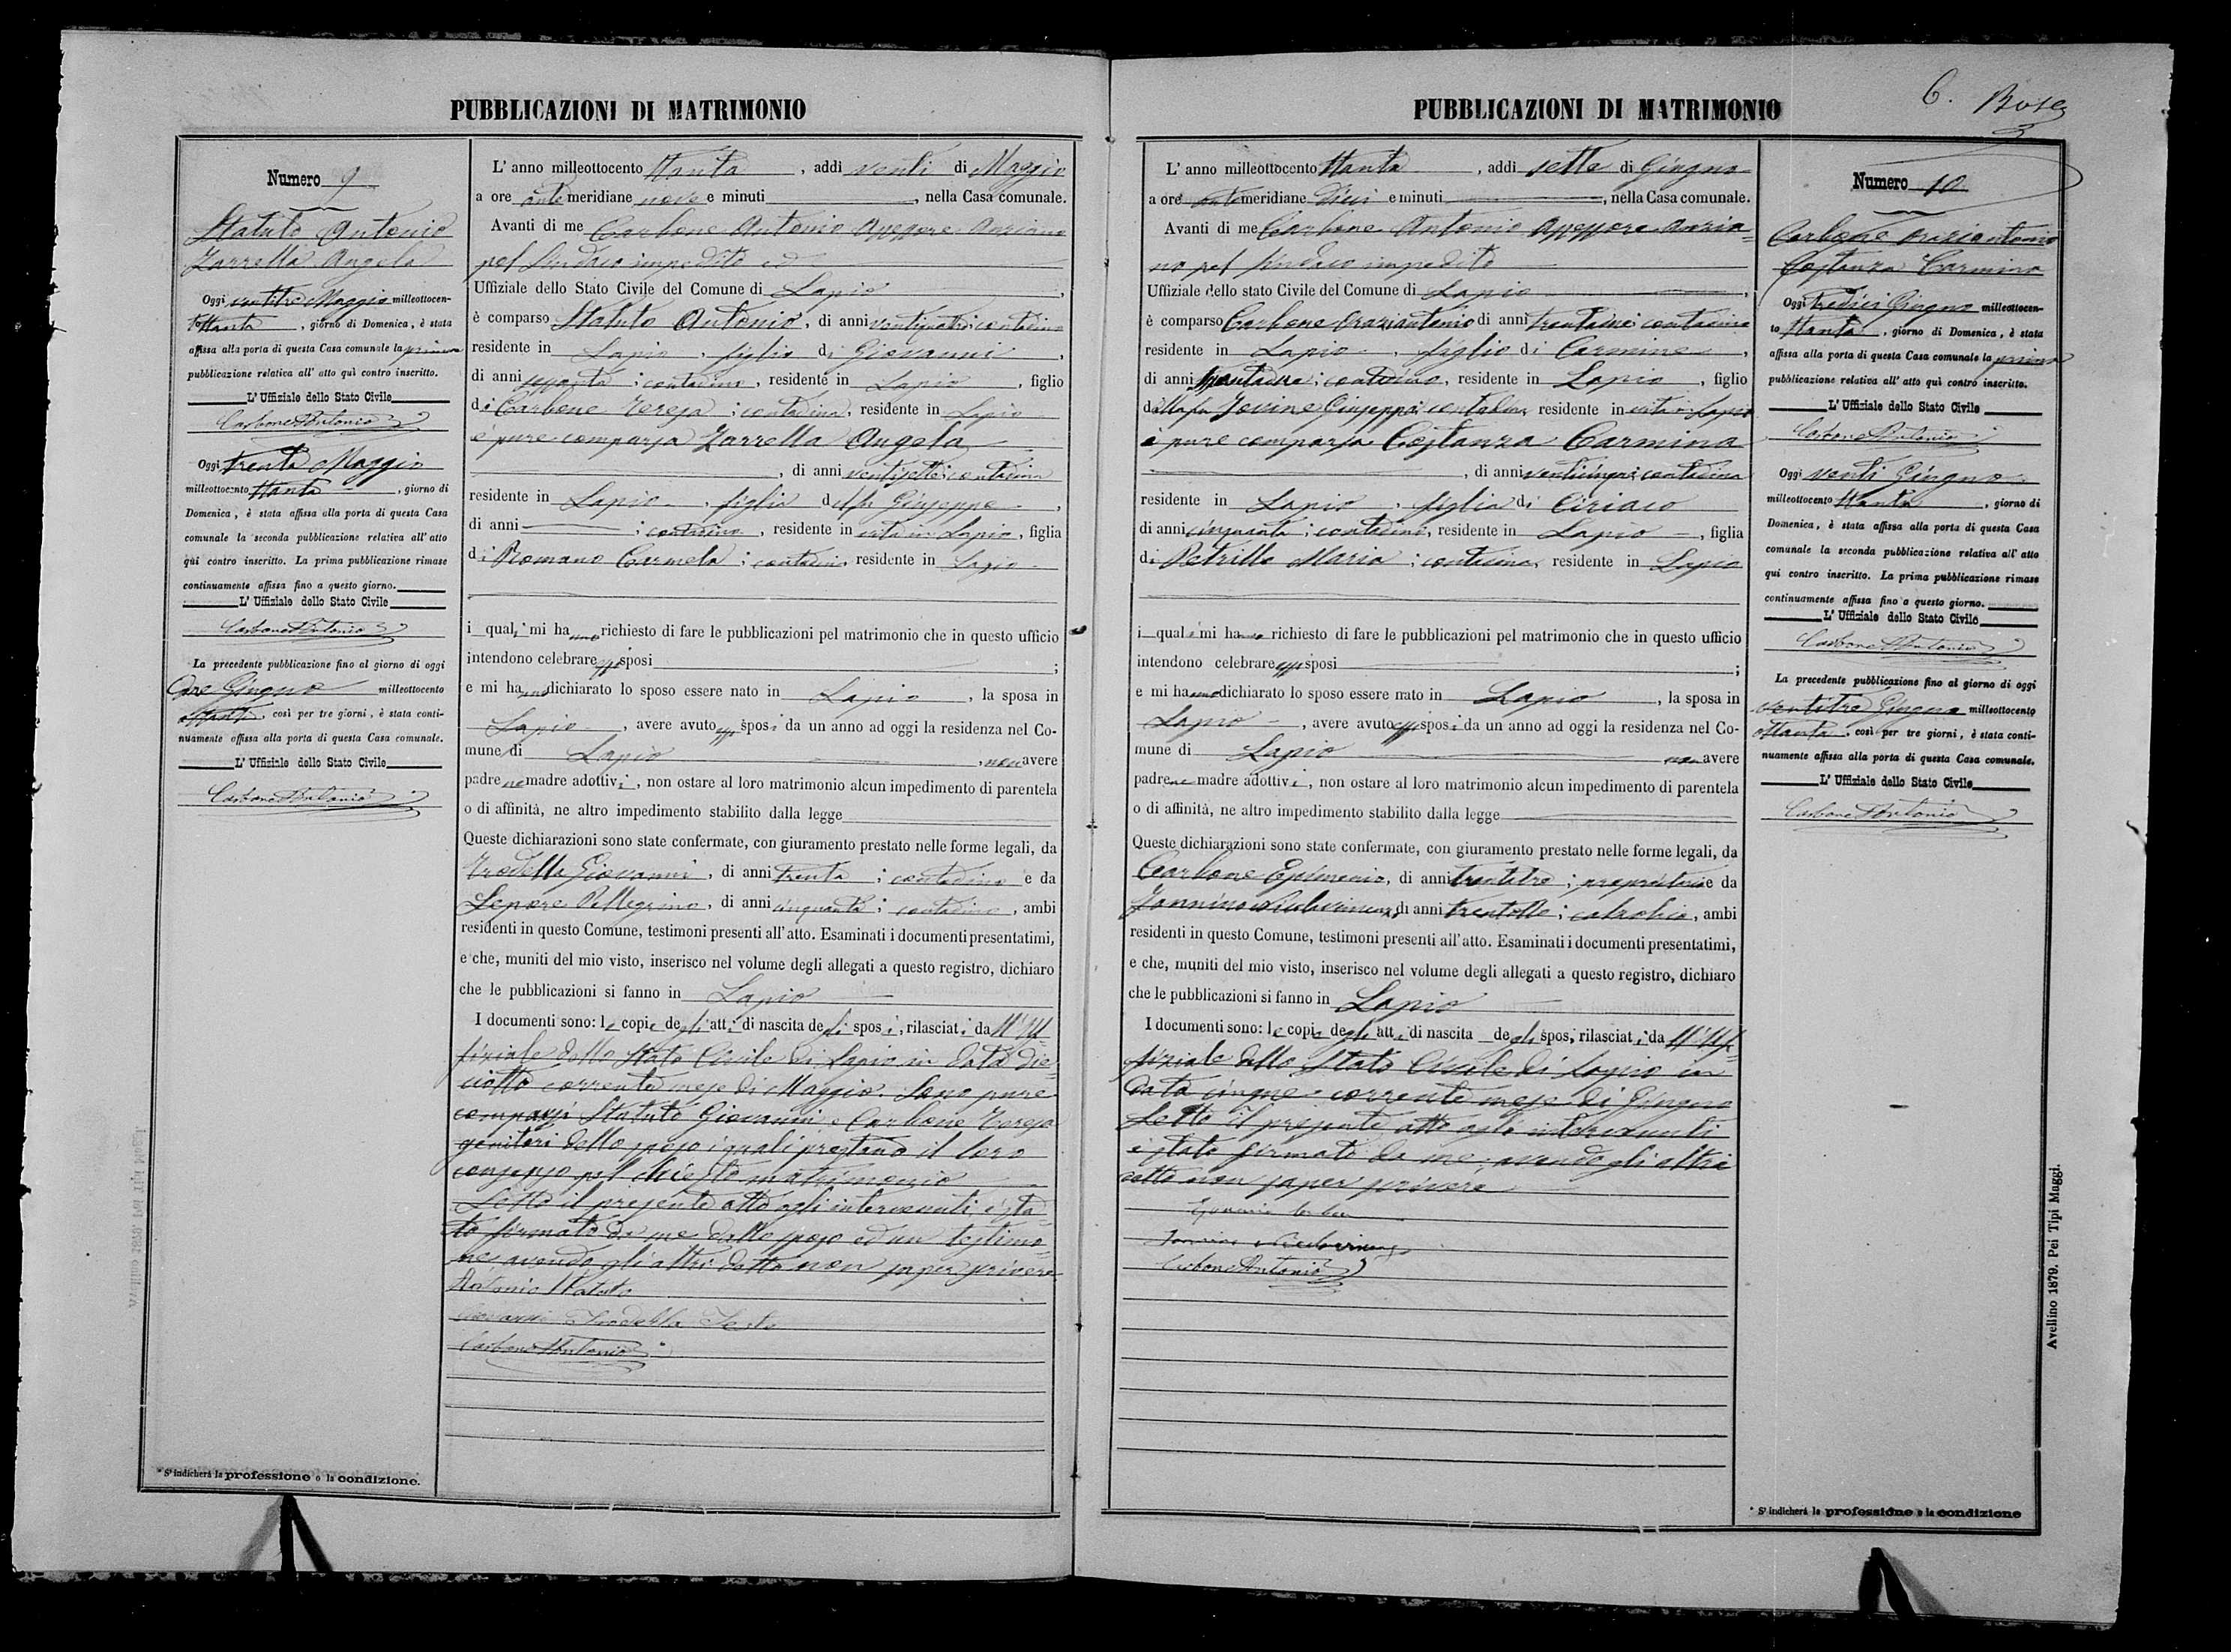 PUBBLICAZIONI DI MATRIMONIO
Numero 9
Statuto Antonio
Zarrella Angela
Oggi ventitre Maggio milleottocen-
to ottanta, giorno di Domenica, è stata
affissa alla porta di questa Casa comunale la prima
pubblicazione relativa all' atto quì contro inscritto.
L' Uffiziale dello Stato Civile
Carbone Antonio
Oggi trenta Maggio
milleottocento ottanta, giorno di
Domenica, è stata affissa alla porta di questa Casa
comunale la seconda pubblicazione relativa all' atto
quì contro inscritto. La prima pubblicazione rimase
continuamente affissa fino a questo giorno.
L' Uffiziale dello Stato Civile
Carbone Antonio
La precedente pubblicazione fino al giorno di oggi
due Giugno milleottocento
ottanta, così per tre giorni, è stata conti-
nuamente affissa alla porta di questa Casa comunale.
L' Uffiziale dello Stato Civile
Carbone Antonio
* S' indicherà la professione o la condizione.
L' anno milleottocento ottanta, addì venti di Maggio
a ore antemeridiane nove e minuti , nella Casa comunale.
Avanti di me Carbone Antonio Assessore Anziano
pel Sindaco impedito ed
Uffiziale dello Stato Civile del Comune di Lapio,
è comparso Statuto Antonio, di anni ventiquattro; contadino
residente in Lapio, figlio di Giovanni,
di anni sessanta; contadino, residente in Lapio, figlio
di Carbone Teresa; contadina, residente in Lapio
è pure comparsa Zarrella Angela
, di anni ventisette; contadina
residente in Lapio, figlia del fu Giuseppe,
di anni ; contadino, residente in vita in Lapio, figlia
di Romano Carmela; contadina, residente in Lapio
i quali mi hanno richiesto di fare le pubblicazioni pel matrimonio che in questo ufficio
intendono celebrare essi sposi ;
e mi hanno dichiarato lo sposo essere nato in Lapio, la sposa in
Lapio, avere avuto essi sposi da un anno ad oggi la residenza nel Co-
mune di Lapio, non avere
padre ne madre adottivi, non ostare al loro matrimonio alcun impedimento di parentela
o di affinità, ne altro impedimento stabilito dalla legge
Queste dichiarazioni sono state confermate, con giuramento prestato nelle forme legali, da
Trodella Giovanni, di anni trenta; contadino e da
Lepore Pellegrino, di anni cinquanta; contadino, ambi
residenti in questo Comune, testimoni presenti all' atto. Esaminati i documenti presentatimi,
e che, muniti del mio visto, inserisco nel volume degli allegati a questo registro, dichiaro
che le pubblicazioni si fanno in Lapio
I documenti sono: le copie degli atti di nascita degli sposi, rilasciati da ll'Uf-
fiziale dello Stato Civile di Lapio in data die-
ciotto corrente mese di Maggio. Sono pure
comparsi Statuto Giovanni e Carbone Teresa
genitori dello sposo i quali prestano il loro
consenso pel chiesto matrimonio
Letto il presente atto agli intervenuti, è sta-
to firmato da me dallo sposo ed un testimo-
ne, avendo gli altri detto non saper scrivere
Antonio Statuto
Giovanni Trodella Teste
Carbone Antonio
PUBBLICAZIONI DI MATRIMONIO
6.
L' anno milleottocento ottanta, addì sette di Giugno
a ore antemeridiane dieci e minuti , nella Casa comunale.
Avanti di me Carbone Antonio Assessore Anzia-
no pel Sindaco impedito
Uffiziale dello stato Civile del Comune di Lapio,
è comparso Carbone Oraziantonio di anni trentasei; contadino
residente in Lapio, figlio di Carmine,
di anni ; contadino, residente in Lapio, figlio
della fu Iovine Giuseppa; contadina, residente in vita in Lapio
è pure comparsa Costanza Carmina
, di anni venticinque; contadina
residente in Lapio, figlia di Ciriaco
di anni cinquanta; contadino, residente in Lapio, figlia
di Petrillo Maria; contadina, residente in Lapio
i quali mi hanno richiesto di fare le pubblicazioni pel matrimonio che in questo ufficio
intendono celebrare essi sposi ;
e mi hanno dichiarato lo sposo essere nato in Lapio, la sposa in
Lapio, avere avuto essi sposi da un anno ad oggi la residenza nel Co-
mune di Lapio non avere
padre ne madre adottivi, non ostare al loro matrimonio alcun impedimento di parentela
o di affinità, ne altro impedimento stabilito dalla legge
Queste dichiarazioni sono state confermate, con giuramento prestato nelle forme legali, da
Carbone Epimenio, di anni trentatre; proprietario e da
Iannino, di anni trentotto; calzolaio, ambi
residenti in questo Comune, testimoni presenti all' atto. Esaminati i documenti presentatimi,
e che, muniti del mio visto, inserisco nel volume degli allegati a questo registro, dichiaro
che le pubblicazioni si fanno in Lapio
I documenti sono: le copie degli atti di nascita degli sposi, rilasciati da ll'Uf-
fiziale dello Stato Civile di Lapio in
data cinque corrente mese di Giugno
Letto il presente atto agli intervenuti
è stato firmato da me, avendo gli altri
detto non saper scrivere
Carbone Antonio
Numero 10
Carbone Oraziantonio
Costanza Carmina
Oggi tredici Giugno milleottocen-
to ottanta, giorno di Domenica, è stata
affissa alla porta di questa Casa comunale la prima
pubblicazione relativa all' atto quì contro inscritto.
L' Uffiziale dello Stato Civile
Carbone Antonio
Oggi venti Giugno
milleottocento ottanta, giorno di
Domenica, è stata affissa alla porta di questa Casa
comunale la seconda pubblicazione relativa all' atto
qui contro inscritto. La prima pubblicazione rimase
continuamente affissa fino a questo giorno.
L' Uffiziale dello Stato Civile
Carbone Antonio
La precedente pubblicazione fino al giorno di oggi
ventitre Giugno milleottocento
ottanta, così per tre giorni, è stata conti-
nuamente affissa alla porta di questa Casa comunale.
L' Uffiziale dello Stato Civile
Carbone Antonio
* S' indicherà la professione o la condizione
Avellino 1879. Pei Tipi Maggi.